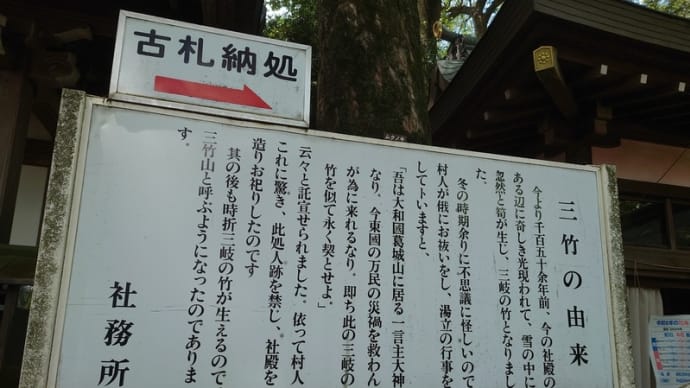 古札納処
三竹の由来
今より千百五十余年前、今の社殿の
ある辺に奇しき光現われて、雪の中に
忽然と筍が生じ、三岐の竹となりまし
た。
冬の時期余りに不思議に怪しいので
村人が俄にお祓いをし、湯立の行事を
してトいますと、
「吾は大和國葛城山に居る一言主大神
なり、今東國の万民の災禍を救わん
が為に来れるなり。即ち此の三岐の
竹を似て永く契とせよ。」
云々と託宣せられました。依って村人
これに驚き、此処人跡を禁じ、社殿を
造りお祀りしたのです
其の後も時折三岐の竹が生えるので
三竹山と呼ぶようになったのでありま
す。
社務所